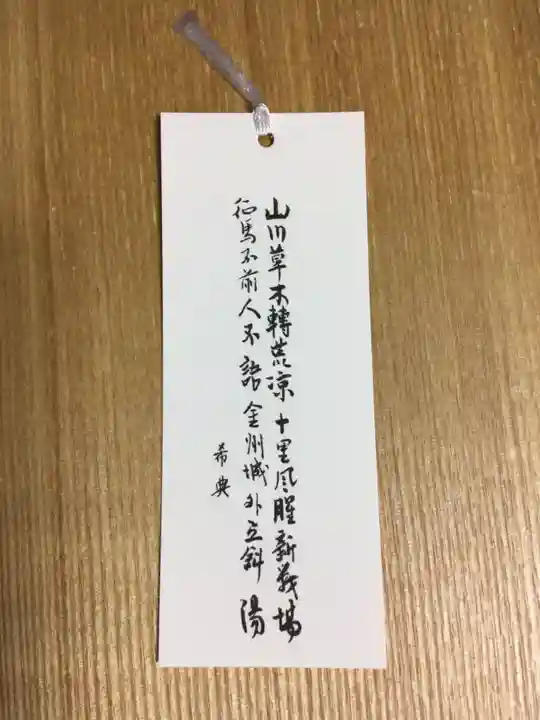 山川草木轉荒涼十里風腥新戰場
征馬不前人不語金州城外立斜陽
希典